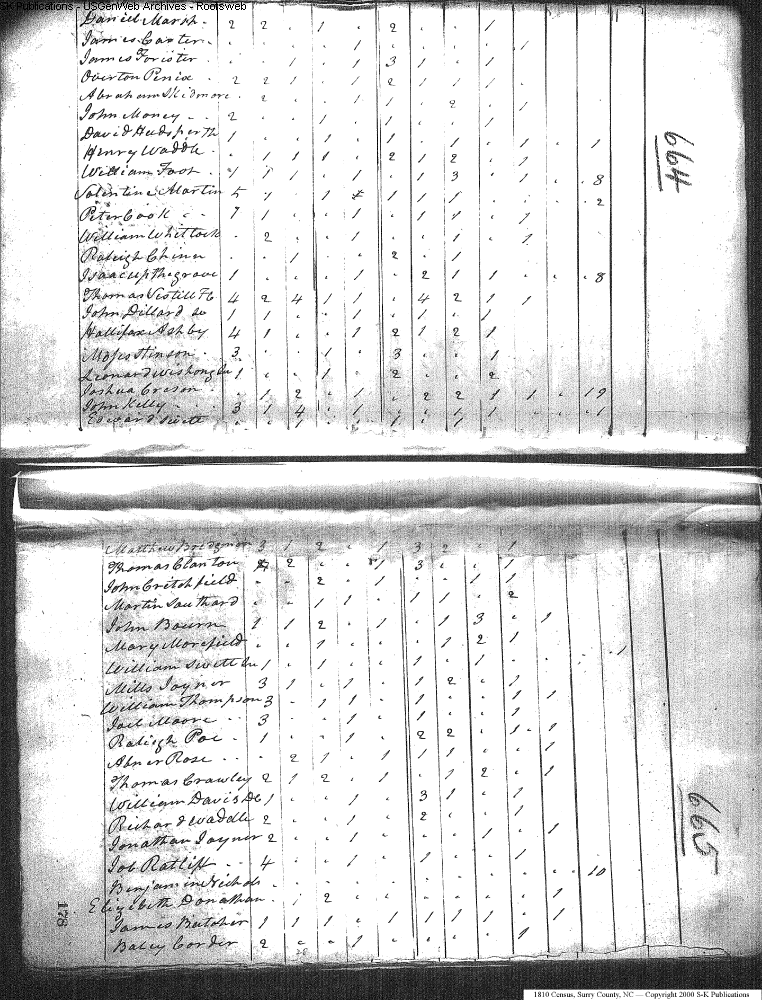 S-K Publications - USGenWeb Archives - Rootsweb
Daniel Marsh . 2 2 . 1 . 2 . . 1
James Carter . . . . . 1 . . . . 1
James Forister . . 1 . 1 3 1 . 1
Overton Penix . 2 2 1 . 1 2 1 1 1
Abraham Skidmore . 2 . . 1 1 . 2 . 1
John Money . . 2 . . 1 . 1 . . 1
David Hudsperth 1 . . . 1 . 1 . 1 . . 1
Henry Waddle . . 1 1 1 . 2 1 2 . 1
William Foot . 1 1 . 1 . 1 3 . 1 . . 8
Valentine Martin 5 . 1 1 1 1 . . . 2
Peter Cook . . 7 1 . . 1 . 1 1 . 1
William Whitlock . 2 . . 1 . . 1 . 1
Raleigh Chinn . . 1 . . 2 . 1
Isaac Upthegrove 1 . . . 1 . 2 1 1 . . . 8
Thomas 4 2 4 1 1 . 4 2 1 1
John Dillard 1 1 . . 1 . 1 . 1
Hallifax Ashby 4 1 . . 1 2 1 2 1
Moses Stinson . 3 . . 1 . 3 . . 1
Leonard 1 . . 1 . 2 . . 2
Joshua Creson . . 1 2 . 1 . 2 2 1 1 . 19
John Kelly . . 3 1 4 . 1 . 1 1 1 . . 1
Edward Swett . . 1 . 1 . 1
664
Matthew 3 1 2 . 1 3 2 . 1
Thomas Clanton 2 . . 1 3 . . 1
John Critchfield . . 2 . 1 . . 1 1
Martin Southard . . 1 1 . 1 1 . 2
John Bourn 1 1 2 . 1 . 1 3 . 1
Mary Morefield . . . . . . 1 2 1 . . . 1
William Swett 1 . 1 . . 1 . 1 .
Mills Joyner 3 1 . 1 . 1 2 . 1
William Thompson 3 . 1 1 . 1 . . 1 1
Joel Moore . . 3 . . 1 . 1 . . 1
Raleigh Poe . 1 . . 1 . 2 2 . 1 . 1
Abner Rose . . . 2 1 . 1 1 1 . . 1
Thomas Crawley 2 1 2 . 1 . 1 2 . 1
William Davis 1 . . 1 . 3 1 . 1
Richard Waddle 2 . . 1 . 2 . . 1
Jonathan Joyner 2 . . 1 . . . 1 . 1
Job Ratliff . . 4 . . 1 . 1 . . 1
Benjamin Nichols . . . . . . . . . . . 10
Elizabeth Donathan . 1 2 . . . . . . 1
James Butcher 1 1 1 . 1 1 1 1 . 1
Baley Corder 2 . . 1 . . . . 1
665
178
1810 Census, Surry County, NC — Copyright 2000 S-K Publications